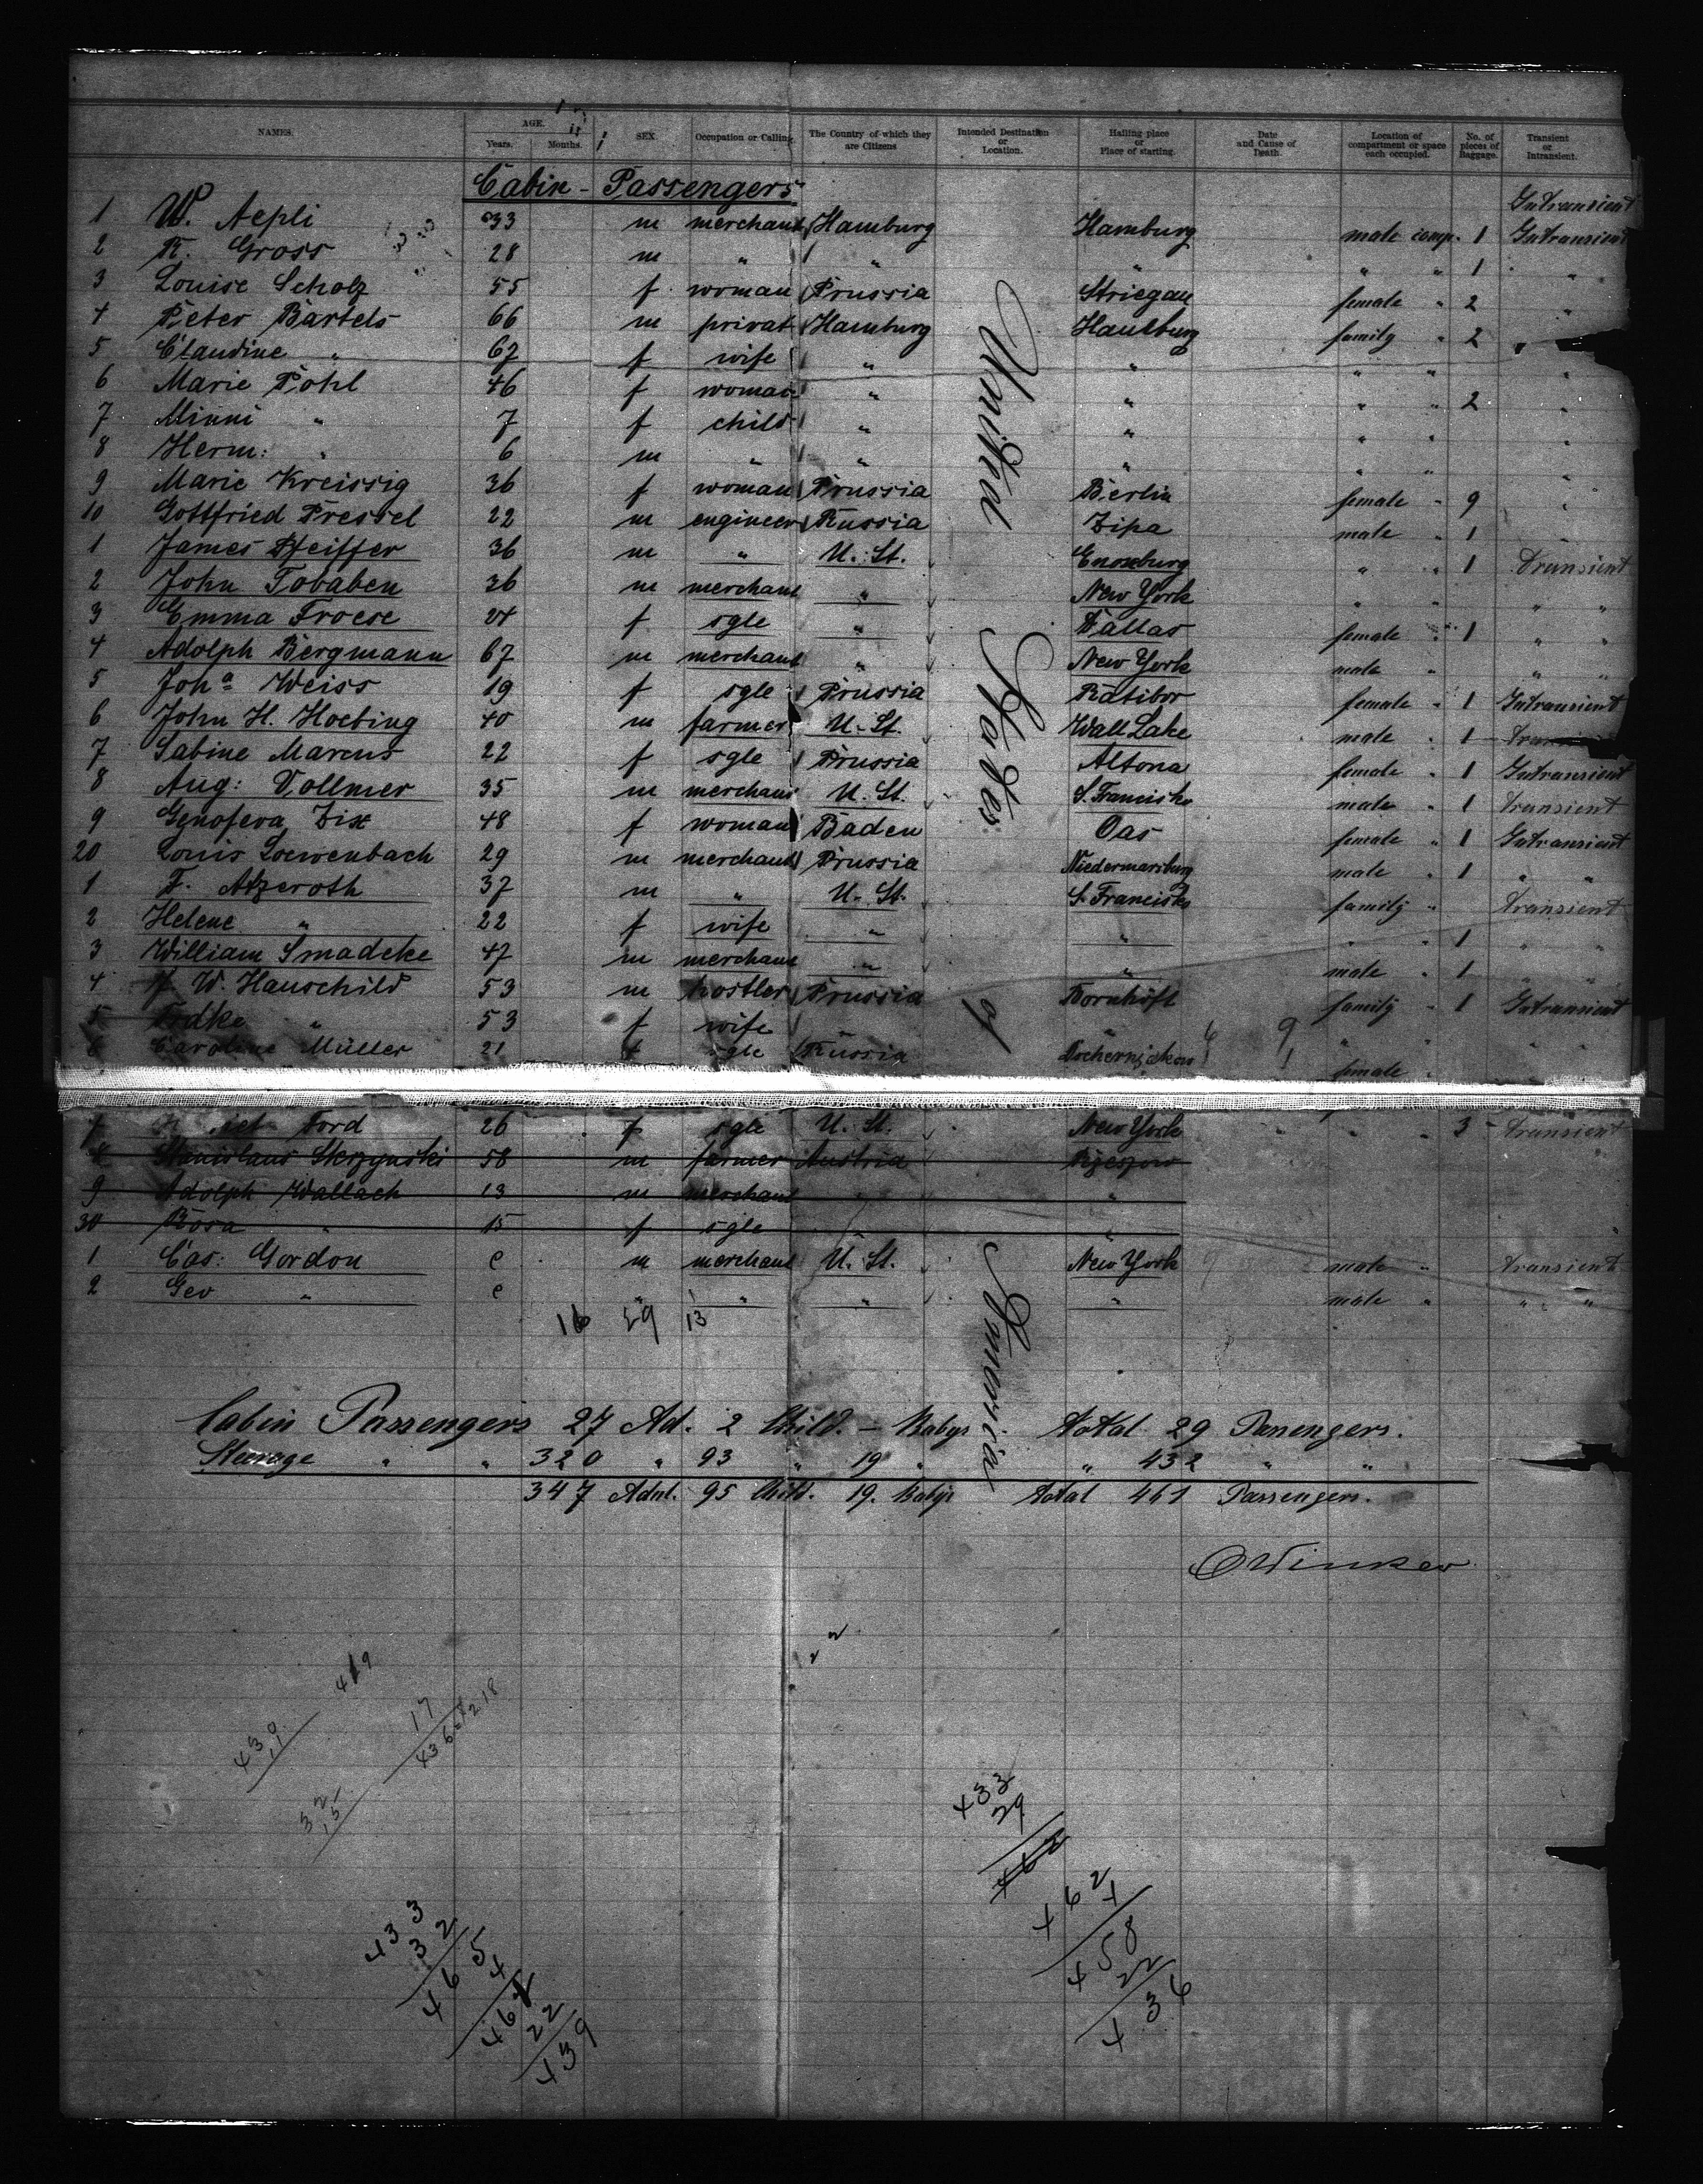 NAMES. AGE. Years. Months. SEX. Occupation or Calling The Country of which they are Citizens Intended Destination or Location. Hailing place or Place of starting. Date and Cause of Death. Location of compartment or space each occupied. No. of pieces of Baggage. Transient or Intransient.
Cabin - Passengers
Intransient
1 W. Aepli 33 m merchant Hamburg Hamburg male comp. 1 Intransient
2 R. Gross 28 m " " " " " 1 "
3 Louise Scholz 55 f woman Prussia Striegau female " 2 "
4 Peter Bartels 66 m privat Hamburg Hamburg family " 2 "
5 Claudine " 67 f wife " " " " "
6 Marie Pohl 46 f woman " " " " 2 "
7 Minni " 7 f child " " " " "
8 Herm: " 6 m " " " " " "
9 Marie Kreissig 36 f woman Prussia Berlin female " 9 "
10 Gottfried Pressel 22 m engineer Russia Zipa male " 1 "
1 James Pfeiffer 36 m " U. St. Enosburg " " 1 transient
2 John Tobaben 36 m merchant " New York " " " "
3 Emma Froese 24 f sgle " Dallas female " 1 " "
4 Adolph Bergmann 67 m merchant " New York male " " "
5 Joh a Weiss 19 f sgle Prussia Ratibor female " 1 Intransient
6 John H. Hoebing 40 m farmer U. St. Wall Lake male " 1 transient
7 Sabine Marcus 22 f sgle Prussia Altona female " 1 Intransient
8 Aug: Vollmer 35 m merchant U. St. S. Francisko male " 1 transient
9 Genofeva Zix 48 f woman Baden Oas female " 1 Intransient
20 Louis Loewenbach 29 m merchant Prussia Niedermarsburg male " 1 " "
1 F. Atzeroth 37 m " U. St. S. Francisko family " transient
2 Helene " 22 f wife " " " " 1 " "
3 William Smadeke 47 m merchant " " male " 1 " "
4 W. Hauschild 53 m hostler Prussia Bornhöft family " 1 Intransient
5 Frdke " 53 f wife " " " " "
6 Caroline Müller 21 f sgle Russia female "
Ford 26 f sgle U. St. New York " " 3 transient
8 Stanislaus Skrzynski 58 m farmer Austria Rzeszow
9 Adolph Wallach 13 m merchant " "
30 Rosa " 15 f sgle " "
1 Cas: Gordon e m merchant U. St. New York male " transient
2 Geo " e " " " " male " " "
United States of America
16 29 13
Cabin Passengers 27 Ad. 2 Child. - Babys. total 29 Passengers.
Steerage " " 320 " 93 " 19 " " 432 " "
347 Adul. 95 Child. 19. Babys total 461 Passengers.
OWinkler
419
17
433
32
465
4
461
22
439
433
29
462
462
4
458
22
436